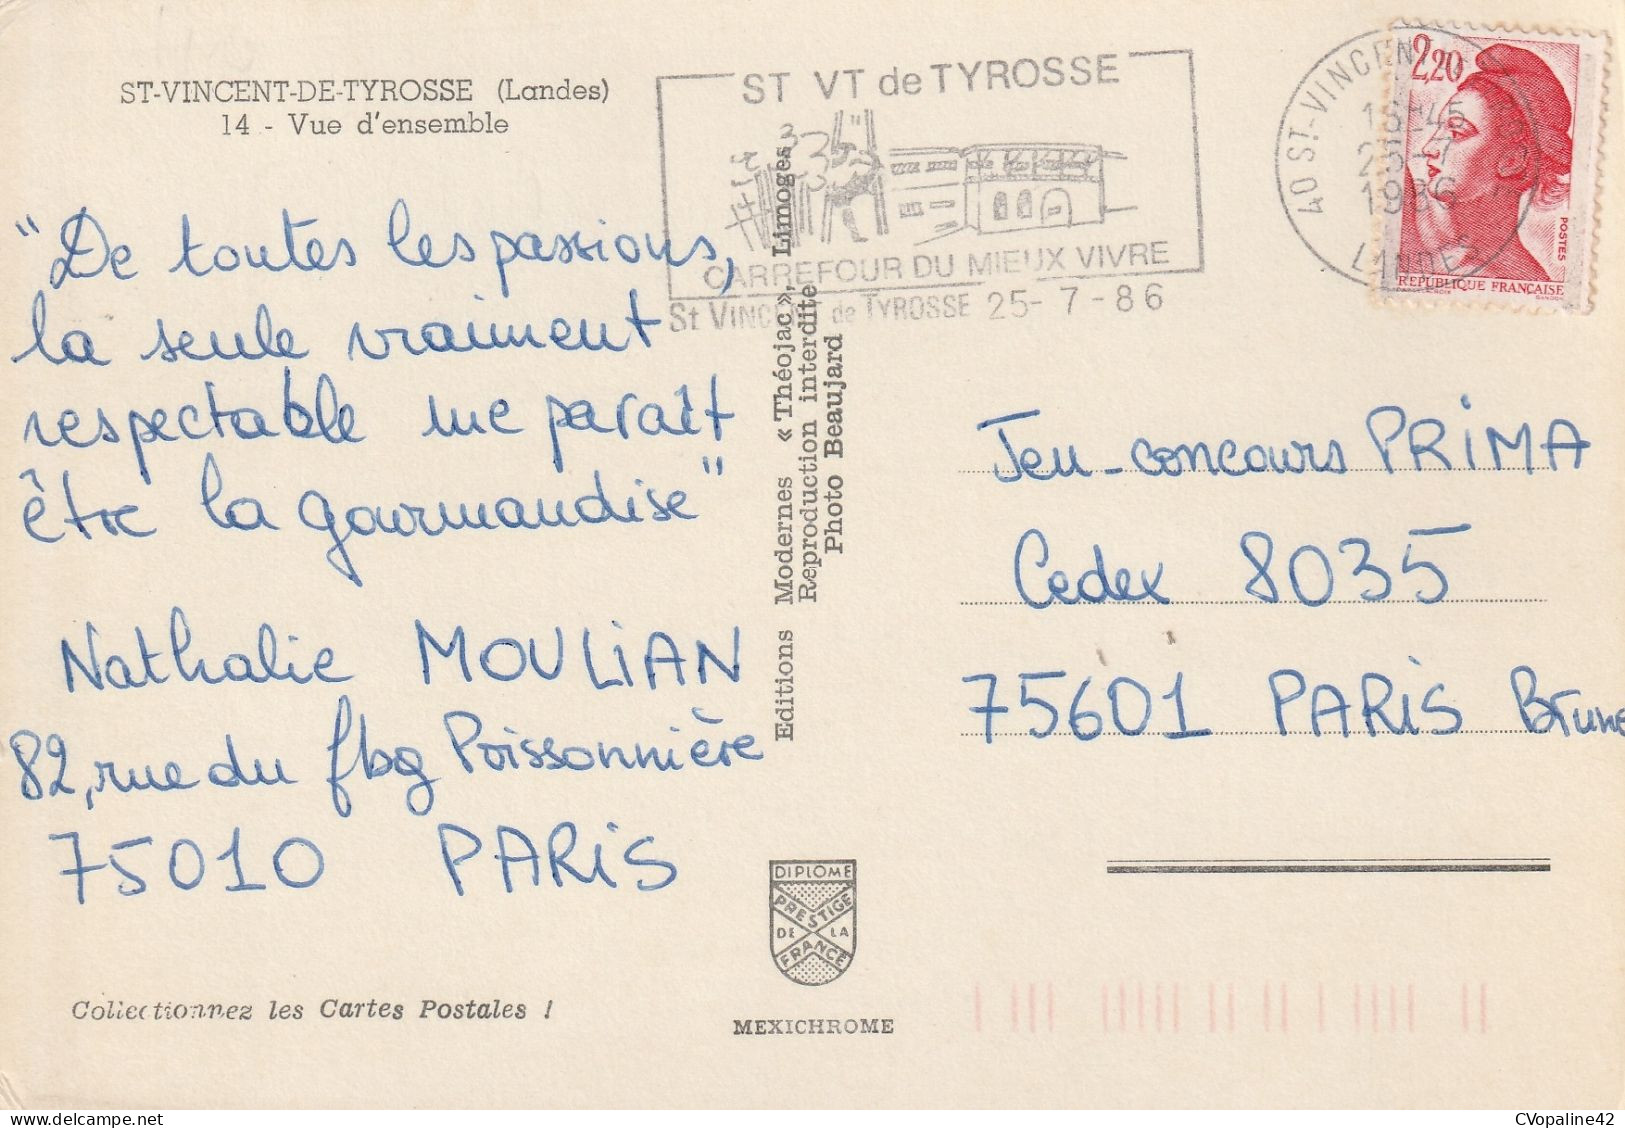 ST-VINCENT-DE-TYROSSE (Landes)
14 - Vue d'ensemble
ST VT de TYROSSE
CARREFOUR DU MIEUX VIVRE
St VINCENT de TYROSSE 25-7-86
40 ST-VINCENT
16H45
25-7
1986
LANDES
2,20
POSTES
REPUBLIQUE FRANÇAISE
GANDON
"De toutes les passions,
la seule vraiment
respectable me paraît
être la gourmandise"
Nathalie MOULIAN
82, rue du fbg Poissonnière
75010 PARIS
Editions Modernes « Théojac », Limoges
Reproduction interdite
Photo Beaujard
Jeu-concours PRIMA
Cedex 8035
75601 PARIS Brune
DIPLOME
PRESTIGE
DE LA
FRANCE
MEXICHROME
Collectionnez les Cartes Postales !
CVopaline42